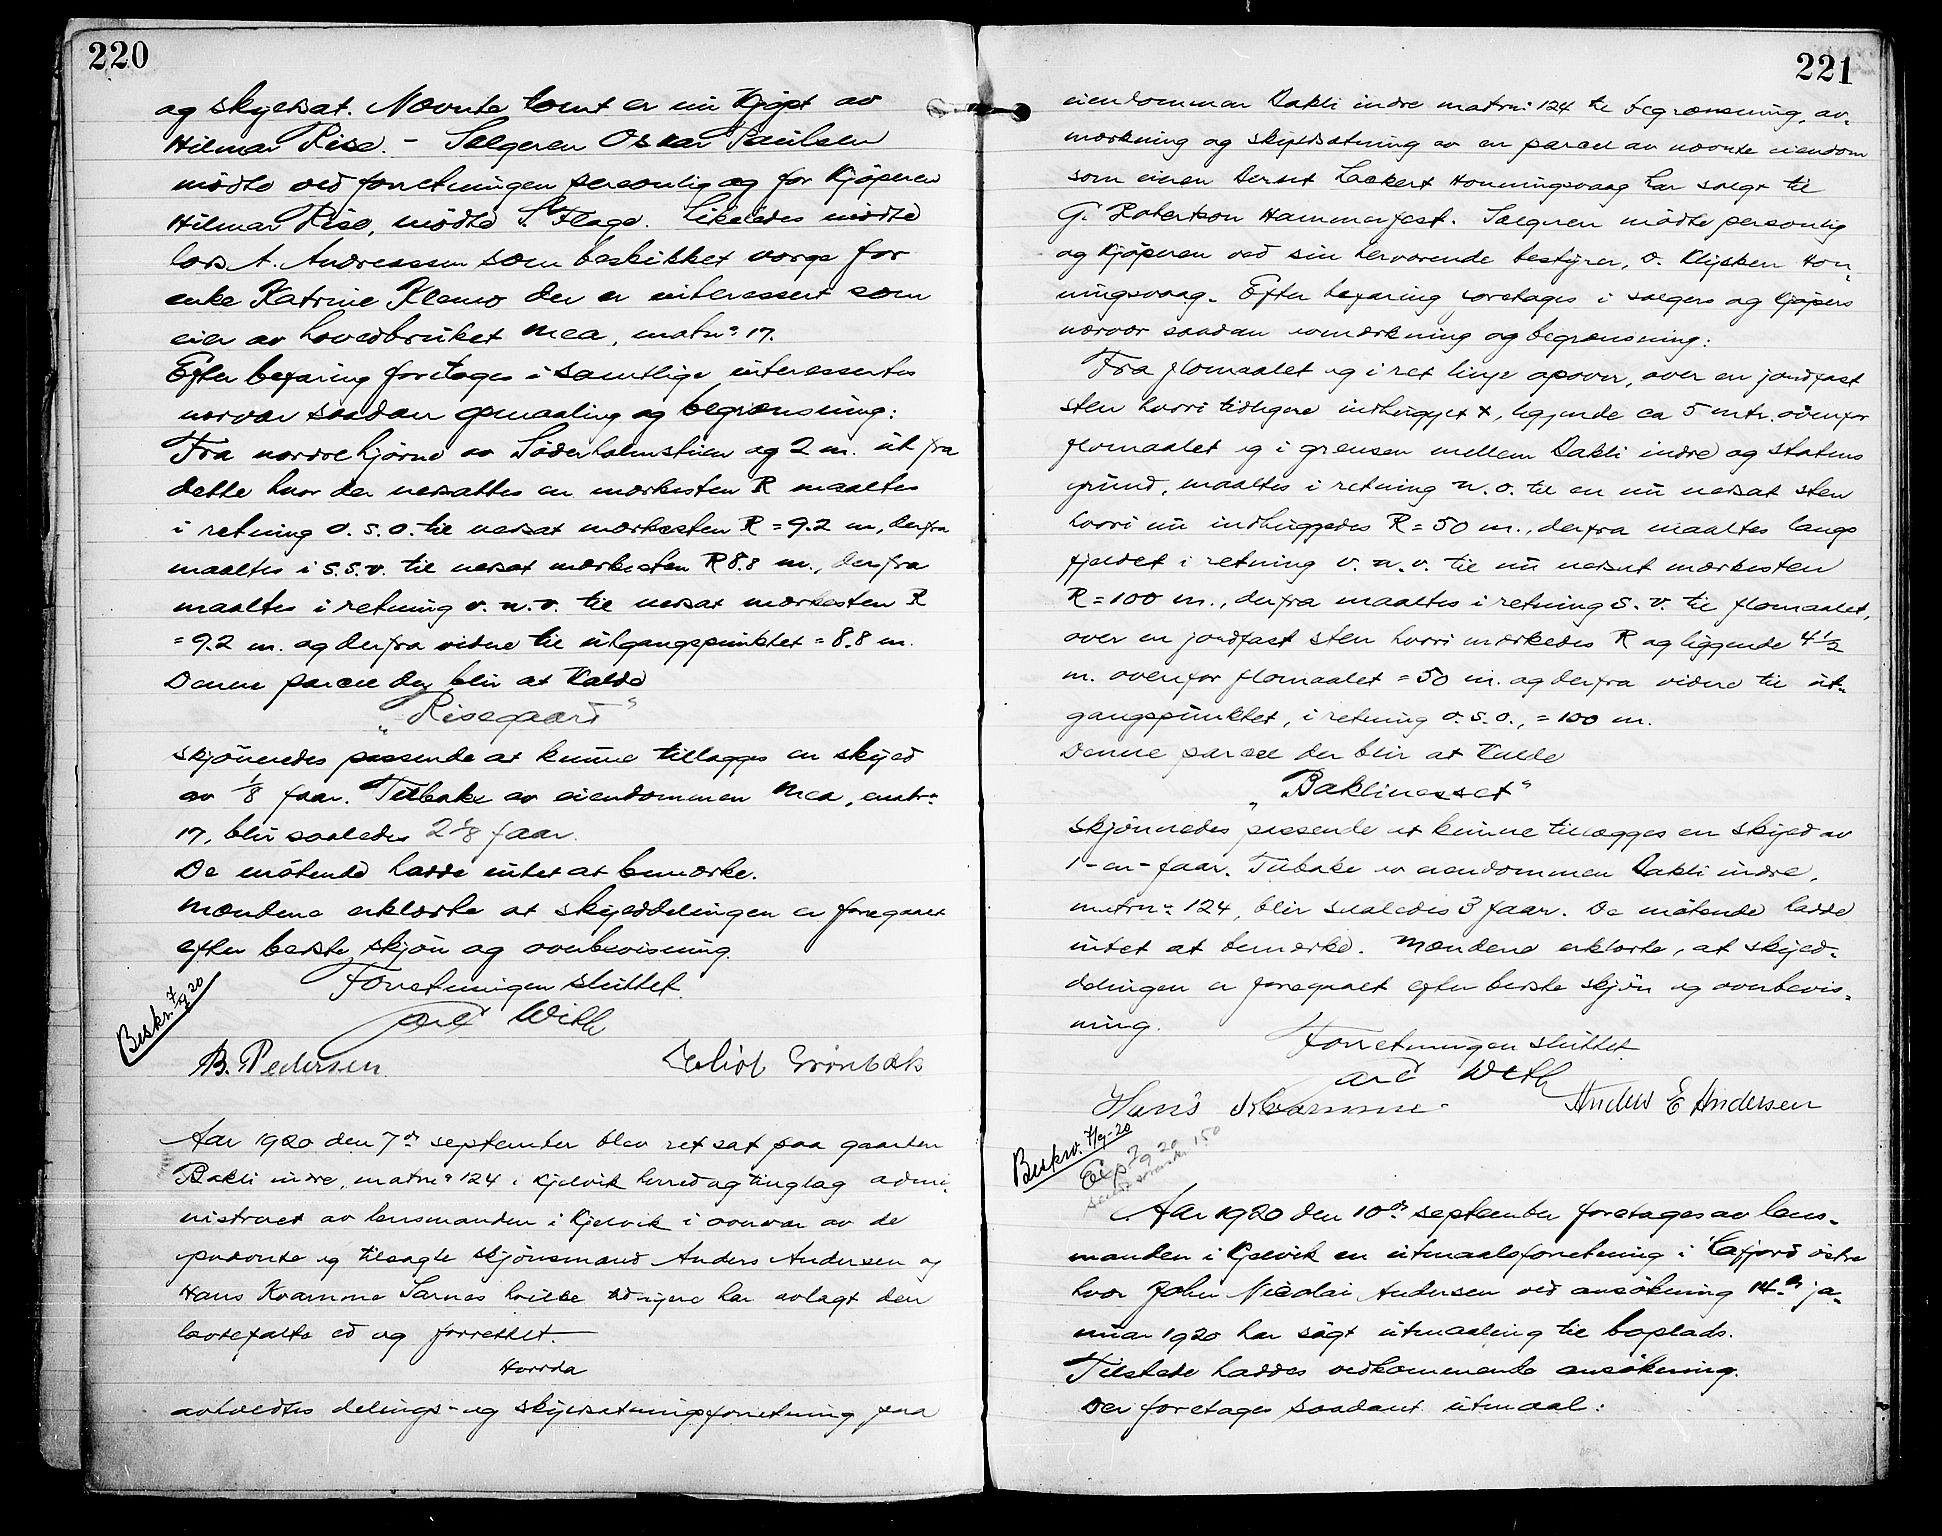 220
og skyldsat. Nævnte tomt er nu kjøpt av
Hilmar Rise. - Sælgeren Oskar Paulsen
mødte ved forretningen personlig og for kjøperen
Hilmar Rise, mødte S. Flage. Likeledes mødte
Lars A. Andreassen som beskikket værge for
enke Katrine Klemo der er interessert som
eier av hovedbruket Mea, matrn° 17.
Efter befaring foretoges i samtlige interessertes
nærvær saadan opmaaling og begrænsning:
Fra nordre hjørne av Söderholmstuen og 2 m. ut fra
dette hvor der nedsattes en merkesten R maaltes
i retning o.s.o. til nedsat merkesten R = 9.2 m, derfra
maaltes i s.s.v. til nedsat merkesten R 8.8 m., derfra
maaltes i retning v.n.v. til nedsat merkesten R
= 9.2 m. og derfra videre til utgangspunktet = 8.8 m.
Denne parcel der blir at kalde
„Risegaard“
skjönnedes passende at kunne tillægges en skyld
av 1/8 faar. Tilbake av eiendommen Mea, matrn°
17, blir saaledes 2 1/8 faar.
De møtende hadde intet at bemerke.
Mændene erklærte at skylddelingen er foregaaet
efter bedste skjøn og overbevisning.
Forretningen sluttet.
Beskr. 7/9 20
Carl With
B. Pedersen Grönbæk
Aar 1920 den 7de september blev ret sat paa gaarden
Bakli indre, matrn° 124 i Kjelvik herred og tinglag admi-
nistrert av lensmanden i Kjelvik i overvær av de
opnævnte og tilsagte skjønsmænd Anders Andersen og
Hans Kvamme Sarnes hvilke tidligere har avlagt den
lovbefalte ed og forrettet.
Hvorda
avholdtes delings- og skyldsætningsforretning paa
221
eiendommen Bakli indre matrn° 124 til begrænsning, av-
merkning og skyldsætning av en parcel av nævnte eiendom
som eieren Bernt Lackert Honningsvaag har solgt til
G. Robertson Hammerfest. Sælgeren mødte personlig
og kjøperen ved sin herværende bestyrer, O. Klysken Hon-
ningsvaag. Efter befaring foretoges i sælgers og kjøpers
nærvær saadan avmerkning og begrænsning:
Fra flomaalet og i ret linje opover, over en jordfast
sten hvori tidligere indhugget x, liggende ca 5 mtr. ovenfor
flomaalet og i grensen mellem Bakli indre og statens
grund, maaltes i retning n.o. til en nu nedsat sten
hvori nu indhuggedes R = 50 m., derfra maaltes langs
fjeldet i retning v.n.v. til nu nedsat merkesten
R = 100 m., derfra maaltes i retning s.v. til flomaalet,
over en jordfast sten hvori merkedes R og liggende 4 1/2
m. ovenfor flomaalet = 50 m. og derfra videre til ut-
gangspunktet, i retning o.s.o., = 100 m.
Denne parcel der blir at kalde
„Baklinesset“
skjønnedes passende at kunne tillægges en skyld av
1 - en - faar. Tilbake av eiendommen Bakli indre,
matrn° 124, blir saaledes 3 faar. De møtende hadde
intet at bemerke. Mændene erklærte, at skyld-
delingen er foregaaet efter bedste skjøn og overbevis-
ning.
Forretningen sluttet
Carl With
Hans Kvamme Anders E Andersen
Beskrev. 7/9-20
Exp 7/9 20
Aar 1920 den 10de september foretoges av lens-
manden i Kjelvik en utmaalsforretning i Cafjord östre
hvor John Nicolai Andersen ved ansökning 14de ja-
nuar 1920 har søgt utmaaling til boplads.
Tilstede haddes vedkommende ansökning.
Der foretoges saadant utmaal: